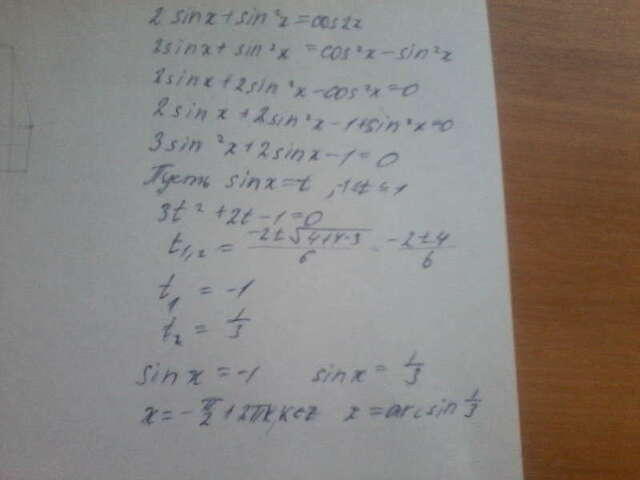 2 sinx + sin²x = cos2x
2sinx + sin²x = cos²x - sin²x
2sinx + 2sin²x - cos²x = 0
2sinx + 2sin²x - 1 + sin²x = 0
3sin²x + 2sinx - 1 = 0
Пусть sinx = t, -1≤t≤1
3t² + 2t - 1 = 0
t₁,₂ = (-2±√(4+4·3))/6 = (-2±4)/6
t₁ = -1
t₂ = 1/3
sinx = -1 sinx = 1/3
x = -π/2 + 2πk, k∈z x = arcsin 1/3